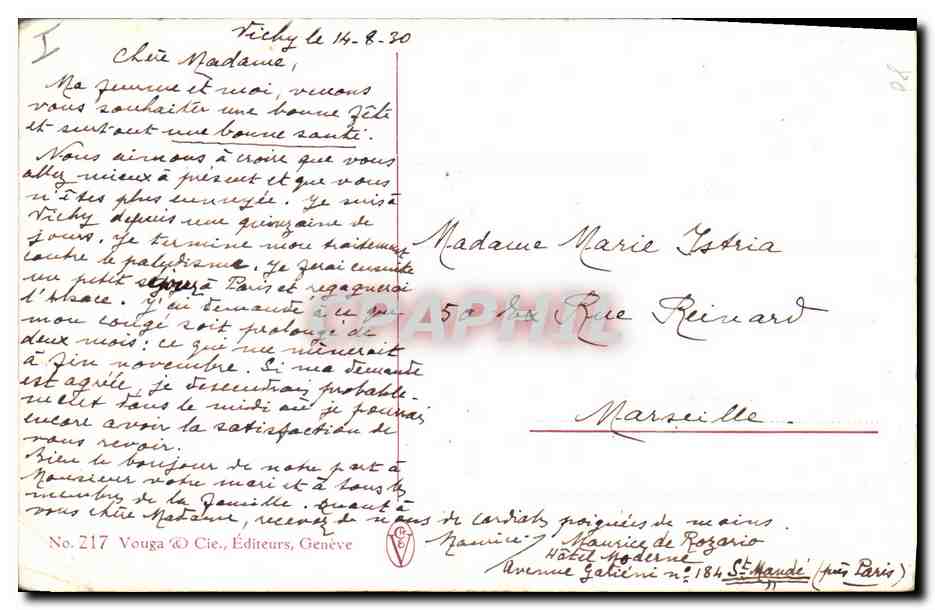 I
Vichy le 14-8-30
Chère Madame,
Ma femme et moi, venons
vous souhaiter une bonne fête
et surtout une bonne santé.
Nous aimons à croire que vous
allez mieux à présent et que vous
n'êtes plus ennuyée. Je suis à
Vichy depuis une quinzaine de
jours. Je termine mon traitement
contre le paludisme. Je ferai ensuite
un petit séjour à Paris et regagnerai
l'Alsace. J'ai demandé à ce que
mon congé soit prolongé de
deux mois: ce qui me mènerait
à fin novembre. Si ma demande
est agréée, je descendrai probable-
ment dans le midi où je pourrai
encore avoir la satisfaction de
vous revoir.
Bien le bonjour de notre part à
Monsieur votre mari et à tous les
membres de la famille. Quant à
vous chère Madame, recevez de nous de cordiales poignées de mains.
Maurice
Maurice de Rozario
Hôtel Moderne
Avenue Galiéni n° 184 St Mandé (près Paris)
Madame Marie Istria
50 Rue Reinard
Marseille.
No. 217 Vouga & Cie., Éditeurs, Genève
CPAPHIL